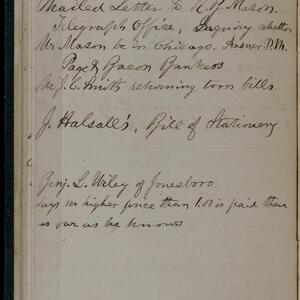 Mailed Letter to R. B. Mason.
Telegraph Office, Inquiry whether
Mr Mason be in Chicago. Answer P.M.
Page & Bacon Bankers
Mr J. C. Smith returning torn bills.
J. Halsall's, Bill of Stationery
Benj. L. Wiley of Jonesboro.
says no higher price than 1.00 is paid there
as far as he knows